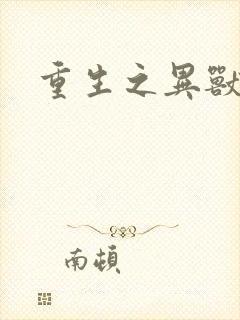 重生之異獸
南頓